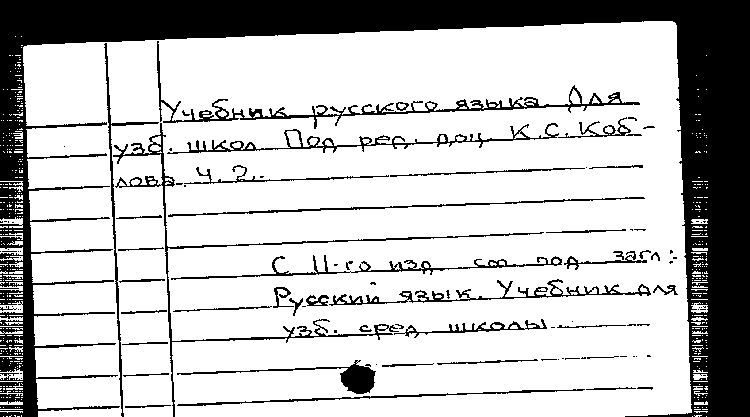 Учебник русского языка. Для
узб. школ. Под ред. доц. К.С. Коб-
лова. Ч. 2.
С 11-го изд. см. под загл.:
Русский язык. Учебник для
узб. сред. школы.